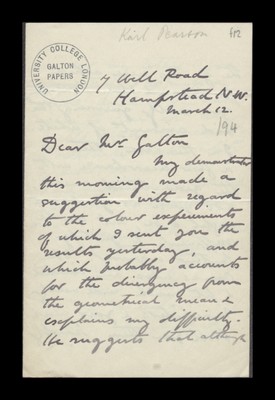 Karl Pearson
UNIVERSITY COLLEGE LONDON
GALTON
PAPERS
7 Well Road
Hampstead N.W.
March 12.
/94
Dear Mr Galton
My demonstrator
this morning made a
suggestion with regard
to the colour experiments
of which I sent you the
results yesterday, and
which probably accounts
for the divergency from
the geometrical mean &
explains my difficulty.
He suggests that although